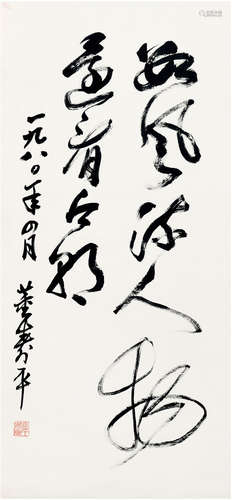 数风流人物
还看今朝
一九八〇年四月
董寿平